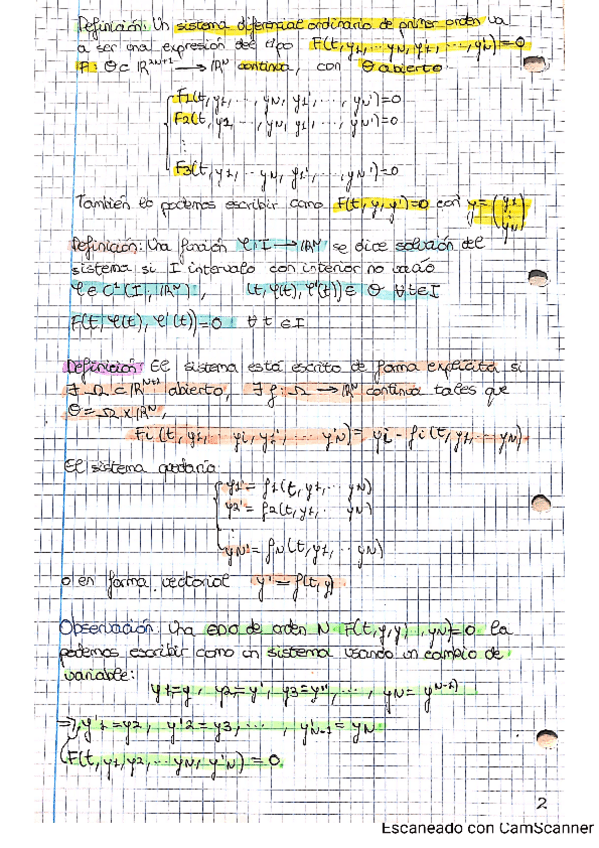 Definición: Un sistema diferencial ordinario de primer orden va
a ser una expresión del tipo F(t,y₁,...y_N,y₁',...,y_N')=0
F: Θ⊂ℝ^{2N+1} → ℝ^N continua, con Θ abierto.
F₁(t,y₁,...,y_N,y₁',...,y_N')=0
F₂(t,y₂,...,y_N,y₁',...,y_N')=0
⋮
F₃(t,y₁,...y_N,y₁',...,y_N')=0
También lo podemos escribir como F(t,y,y')=0 con y=(y₁ ⋮ y_N)
Definición: Una función φ: I → ℝ^N se dice solución del
sistema si I intervalo con interior no vacío
φ∈C¹(I,ℝ^N), (t,φ(t),φ'(t))∈Θ ∀t∈I
F(t,φ(t),φ'(t))=0 ∀t∈I
Definición: El sistema está escrito de forma explícita si
∃ Ω⊂ℝ^{N+1} abierto, ∃ f: Ω → ℝ^N continua tales que
Θ=Ω×ℝ^N,
Fi(t,y₁,...yi,y₁',...y'_N)=yi-fi(t,y₁,...y_N)
El sistema quedaría
y₁'=f₁(t,y₁,...y_N)
y₂'=f₂(t,y₁,...y_N)
⋮
y_N'=f_N(t,y₁,...y_N)
o en forma vectorial y'=f(t,y)
Observación: Una EDO de orden N F(t,y,y',...,y_N)=0 la
podemos escribir como un sistema usando un cambio de
variable:
y₁=y, y₂=y', y₃=y'',..., y_N=y^{N-1)}
⇒ y'₁=y₂, y'₂=y₃,..., y'_{N-1}=y_N
F(t,y₁,y₂,...y_N,y'_N)=0.
2
Escaneado con CamScanner